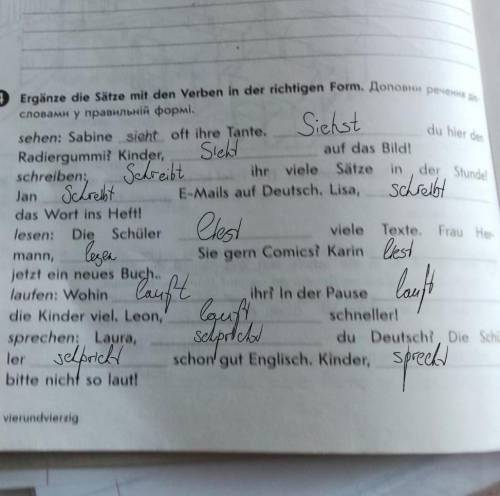 Ergänze die Sätze mit den Verben in der richtigen Form. Доповни речення діє-
словами у правильній формі.
sehen: Sabine sieht oft ihre Tante. Siehst du hier den
Radiergummi? Kinder, Sieht auf das Bild!
schreiben: Schreibt ihr viele Sätze in der Stunde?
Jan Schreibt E-Mails auf Deutsch. Lisa, schreibt
das Wort ins Heft!
lesen: Die Schüler lest viele Texte. Frau Her-
mann, legen Sie gern Comics? Karin lest
jetzt ein neues Buch.
laufen: Wohin lauft ihr? In der Pause lauft
die Kinder viel. Leon, lauft schneller!
sprechen: Laura, schpricht du Deutsch? Die Schü-
ler schpricht schon gut Englisch. Kinder, sprecht
bitte nicht so laut!
vierundvierzig